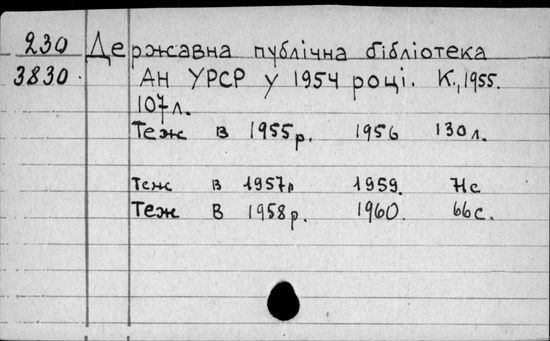 230 Державна публічна бібліотека
3830 АН УРСР у 1954 році. К., 1955.
107 л.
Теж в 1955р. 1956 130 л.
Теж в 1957р 1959. 74с
Теж в 1958р. 1960. 66с.